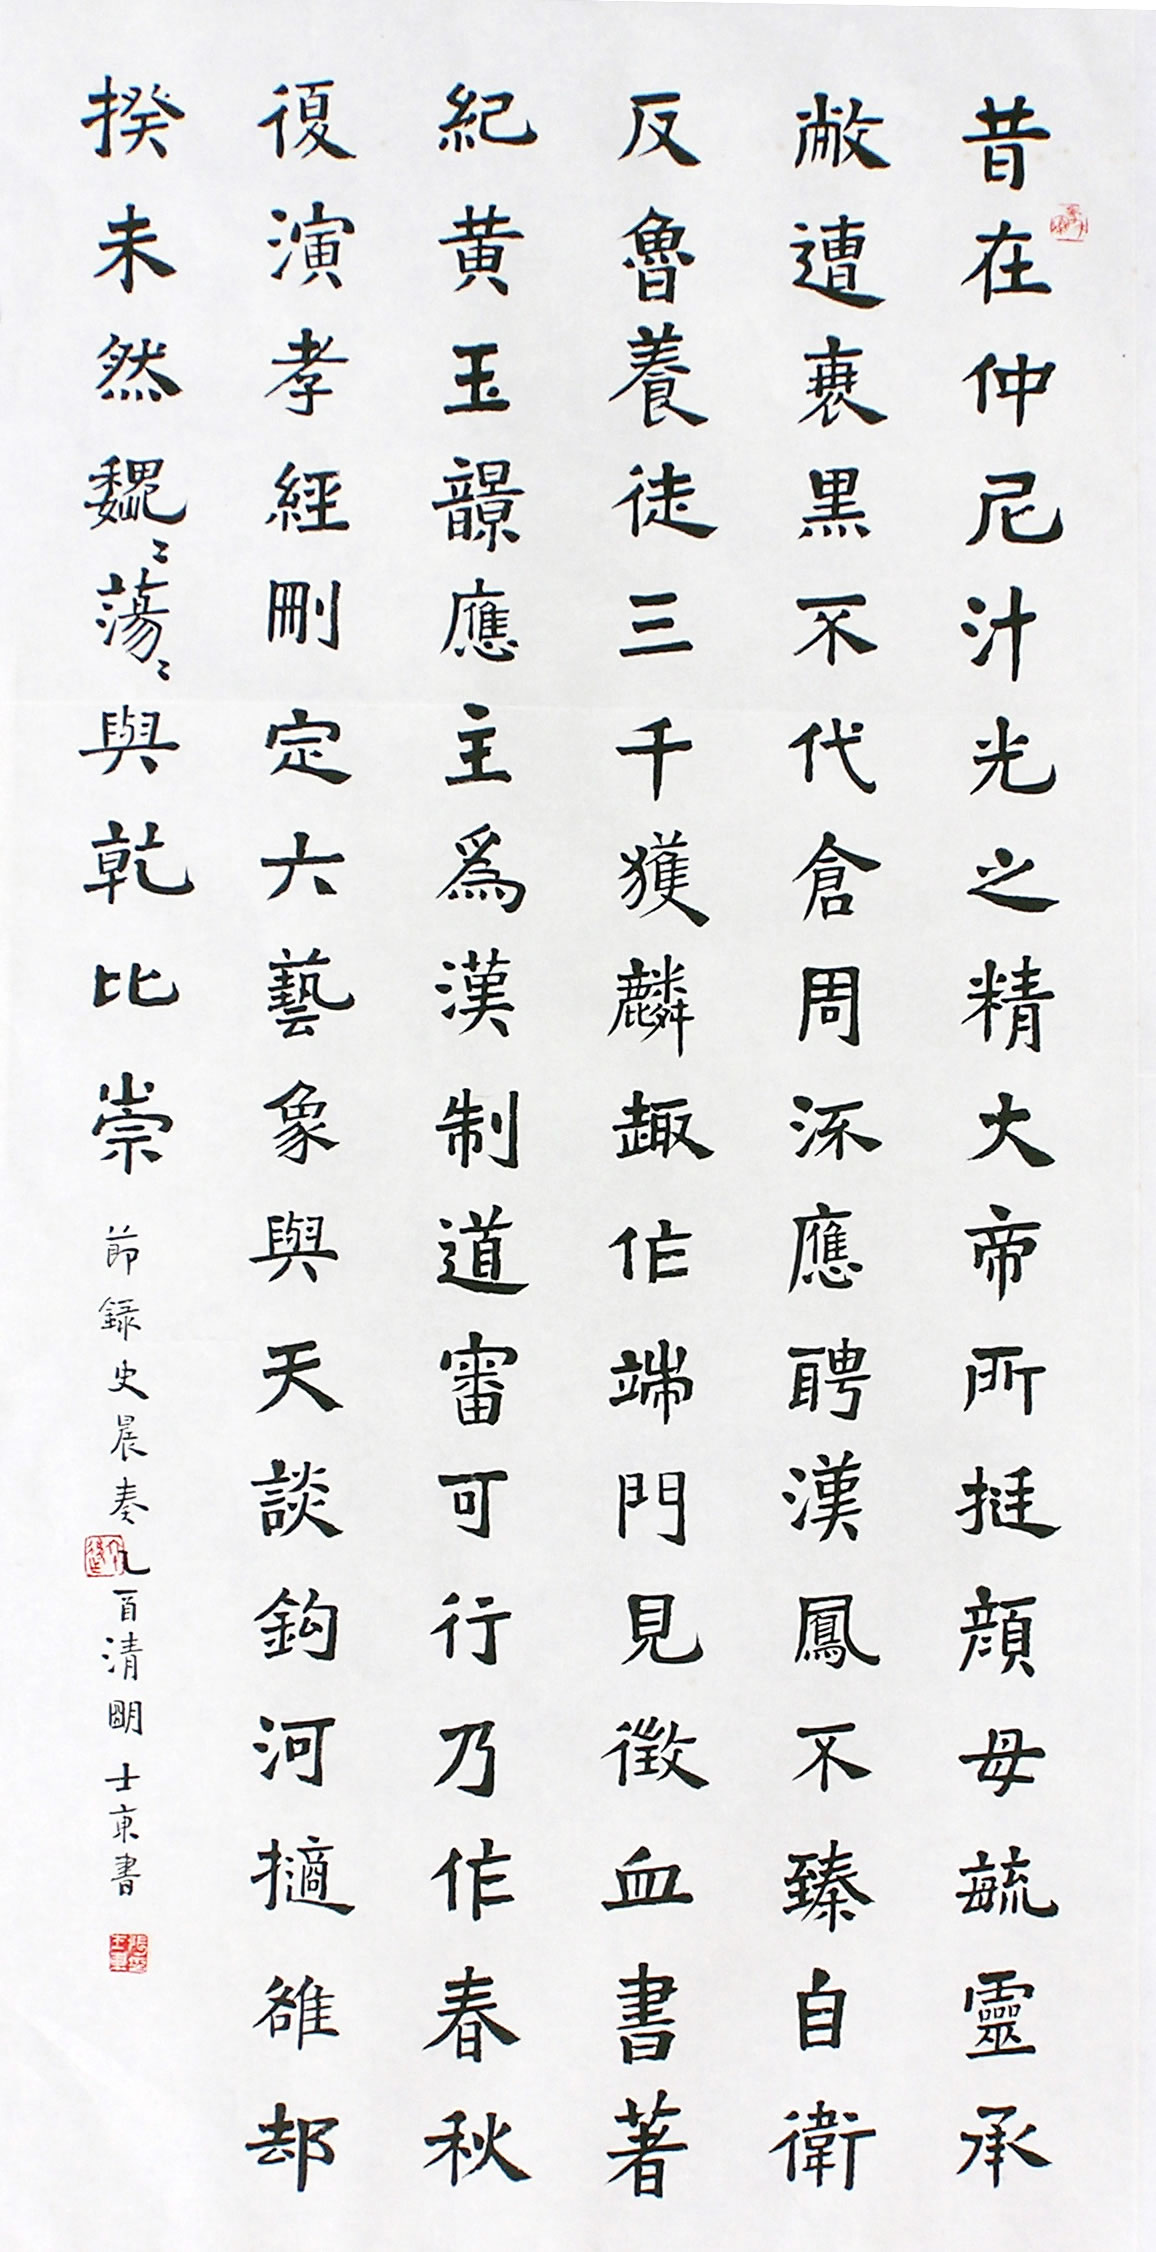 昔在仲尼汁光之精大帝所挺顏母毓靈承
敝遭衰黑不代倉周流應聘漢鳳不臻自衛
反魯養徒三千獲麟趣作端門見徵血書著
紀黃玉䪫應主為漢制道審可行乃作春秋
復演孝經刪定六藝象與天談鈎河擿雒却
揆未然巍〻蕩〻與乾比崇
節錄史晨奏 乙酉清明 士東書